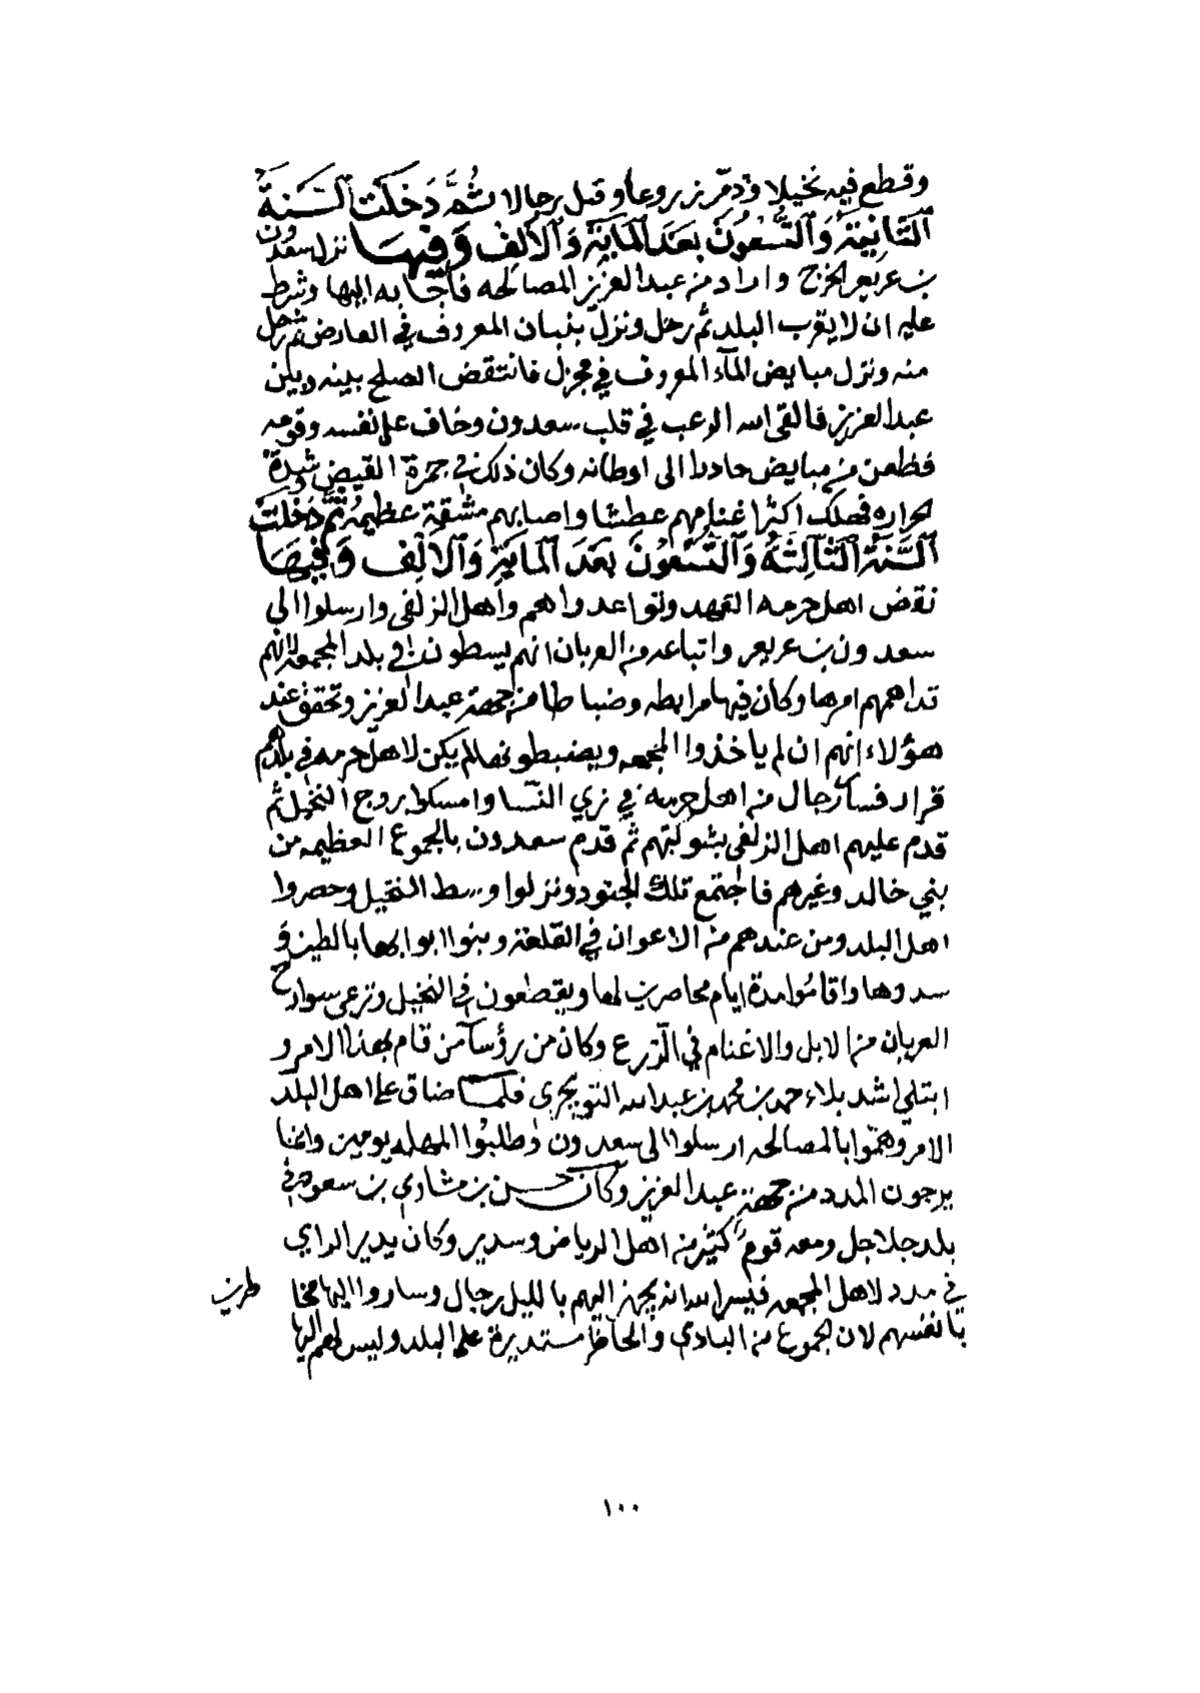 وقطع فيه نخيلا ودمّر زروعا وقتل رجالا ثُمَّ دَخَلَت اَلسَّنة
اَلثَّانِيَة وَالتِّسْعُونَ بَعدَ المايَة وَالأَلف وَفيهَا نزل سعدون
بن عريعر الخرج واراد من عبدالعزيز المصالحه فاجابه اليها وشرط
عليه ان لا يقرب البلد ثم رحل ونزل بنبان المعروف في العارض ثم رحل
منه ونزل مبايض المآء المعروف في مجزل فانتقض الصلح بينه وبين
عبدالعزيز فالقى الله الرعب في قلب سعدون وخاف على نفسه وقومه
فظعن من مبايض حادرا الى اوطانه وكان ذلك في جمرة القيض وشدة
حراره فهلك اكثر اغنامهم عطشا واصابهم مشقة عظيمة ثُمَّ دَخلت
اَلسَّنَة الثَّالِثَةُ وَالتِّسْعُونَ بعَدَ المايَة وَالاَلِف وَفِيهَا
نقض اهل حرمه العهد وتواعدوا هم وأهل الزلفي وارسلوا الى
سعدون بن عريعر واتباعه من العربان انهم يسطون في بلد المجمعه لانهم
تداهمهم امرها وكان فيها مرابطه وضباطا من جهة عبدالعزيز وتحقق عند
هؤلاء انهم ان لم ياخذوا المجمعه ويضبطونها لم يكن لاهل حرمه في بلدهم
قرار فسار رجال من اهل حرمه في زي النسا وامسكوا بروج النخيل ثم
قدم عليهم اهل الزلفي بشوكتهم ثم قدم سعدون بالجموع العظيمه من
بني خالد وغيرهم فاجتمع تلك الجنود ونزلوا وسط النخيل وحصروا
اهل البلد ومن عندهم من الاعوان في القلعة وبنوا ابوابها بالطين و
سدوها واقامُوا مدة ايام محاصرين لها ويقطعون في النخيل وترعى سوارح
العربان من الابل والاغنام في الزرع وكان من رؤسآ من قام بهذا الامر و
ابتلي اشد بلاء حمد بن محمد بن عبدالله التويجري فلما ضاق على اهل البلد
الامر وهمّوا بالمصالحه ارسلوا الى سعدون وطلبُوا المهله يومين وانما
يرجون المدد من جهة عبدالعزيز وكان حسن بن مشاري بن سعود في
بلد جلاجل ومعه قومٌ كثير من اهل الرياض وسدير وكان يدير الراي
في مدد لاهل المجمعه فيسر الله انه يجهز اليهم بالليل رجال وساروا اليها مخا طرين
بانفسهم لان الجموع من البادي والحاضر مستديرة على البلد وليس لهم اليها
١٠٠